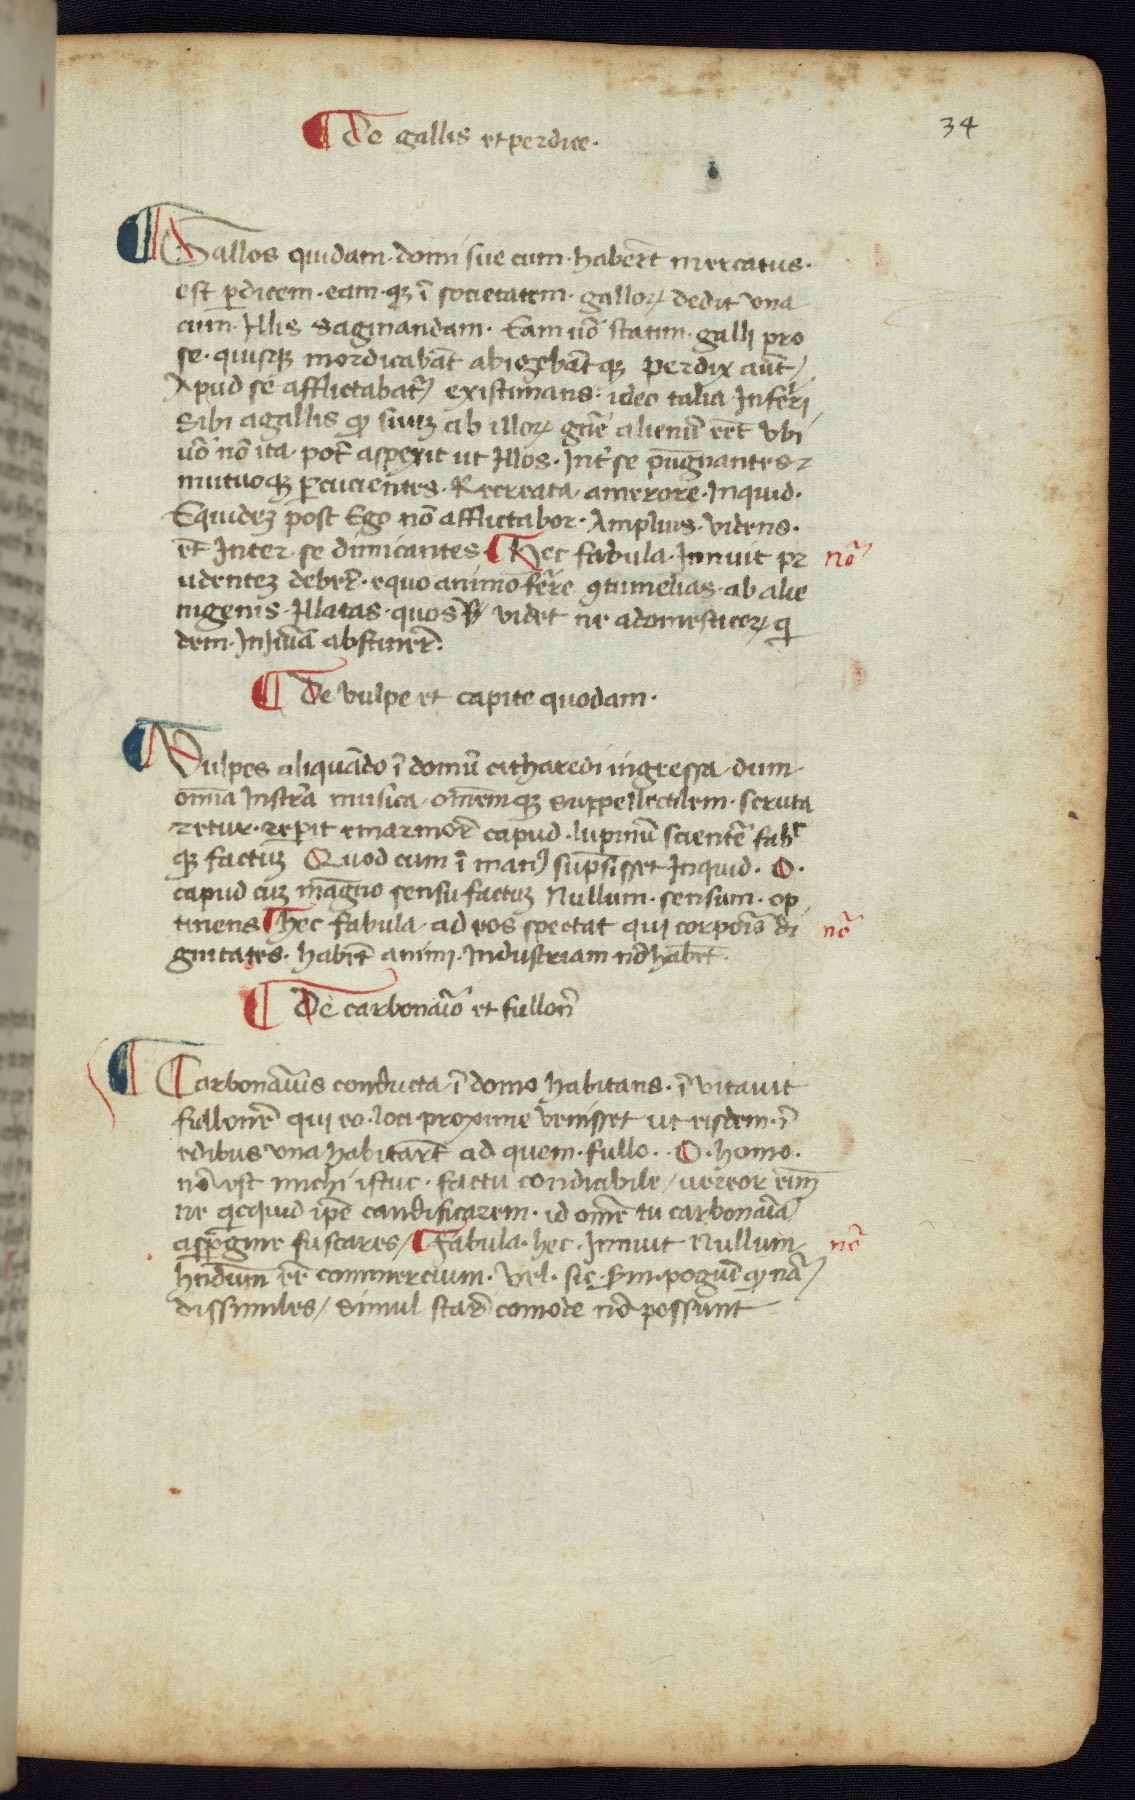 34
¶ De gallis et perdice·
¶ Gallos quidam· domi sue cum· haberēt mercatus·
est ꝑdicem· eam· qꝫ ī societatem· galloꝝ dedit vna
cum· Illis saginandam· Eam uō statim· galli pro
se· quisqꝫ mordicabāt abigebāt qꝫ Perdix aūt /
Apud se afflictabat᷒ existimans· ideo talia Inferri
Sibi agallis ꝙ suuꝫ ab illoꝝ gn̄e alienū eēt vbi
uō nō ita· pot̄ aspexit ut Illos· Int̄ se pugnantes
mutuoqꝫ ꝑcucientes· Recreata· amerore· Inquid·
Equideꝫ post Ego nō afflictabor· Amplius· videns·
et Inter· se dimicantes· ¶ Hec fabula· Innuit pr
nō
udenteꝫ deber̄· equo animo fer̄re ꝯtumelias· ab alie
nigenis· Illatas· quos videt ne adomesticoꝝ qi
dem· Iniuia abstiner̄·
¶ De vulpe et capite quodam·
¶ Vulpes aliquādo ī domū citharedi ingressa· dum
omīa Instr̄a musica· omēm qꝫ suppellectilem· scruta
retur· reperit emarmor̄ capud· lupinū scient̄e fabr̄
qꝫ factuꝫ Quod cum ī manꝰ sūpsisset Inquid· O·
capud cuꝫ magno sensu factuꝫ Nullum· sensum· op
tinens ¶ hec fabula· ad eos spectat qui corporis di
nō
gnitates· habēt animi· Industriam nō habēt·
¶ De carbonaīo et fullon̄
¶ Carbonarius conducta ī domo habitans· ī vitauit
fullonē qui eo· loci· proxime venisset ut eisdem· ī
edibus vna habitarēt ad quem· fullo·· O· homo·
nō est michi istuc· factu condiabile / uereor eīm
ne qicquid ip̄e candificarem· id om̄e tu carbonaīa
aspergine fuscares / ¶ Fabula· hec· Innuit Nullum
nō
hn̄dum eē commercium· vel· sic· ꝙ nā
dissimiles / simul star̄ comode nō possunt